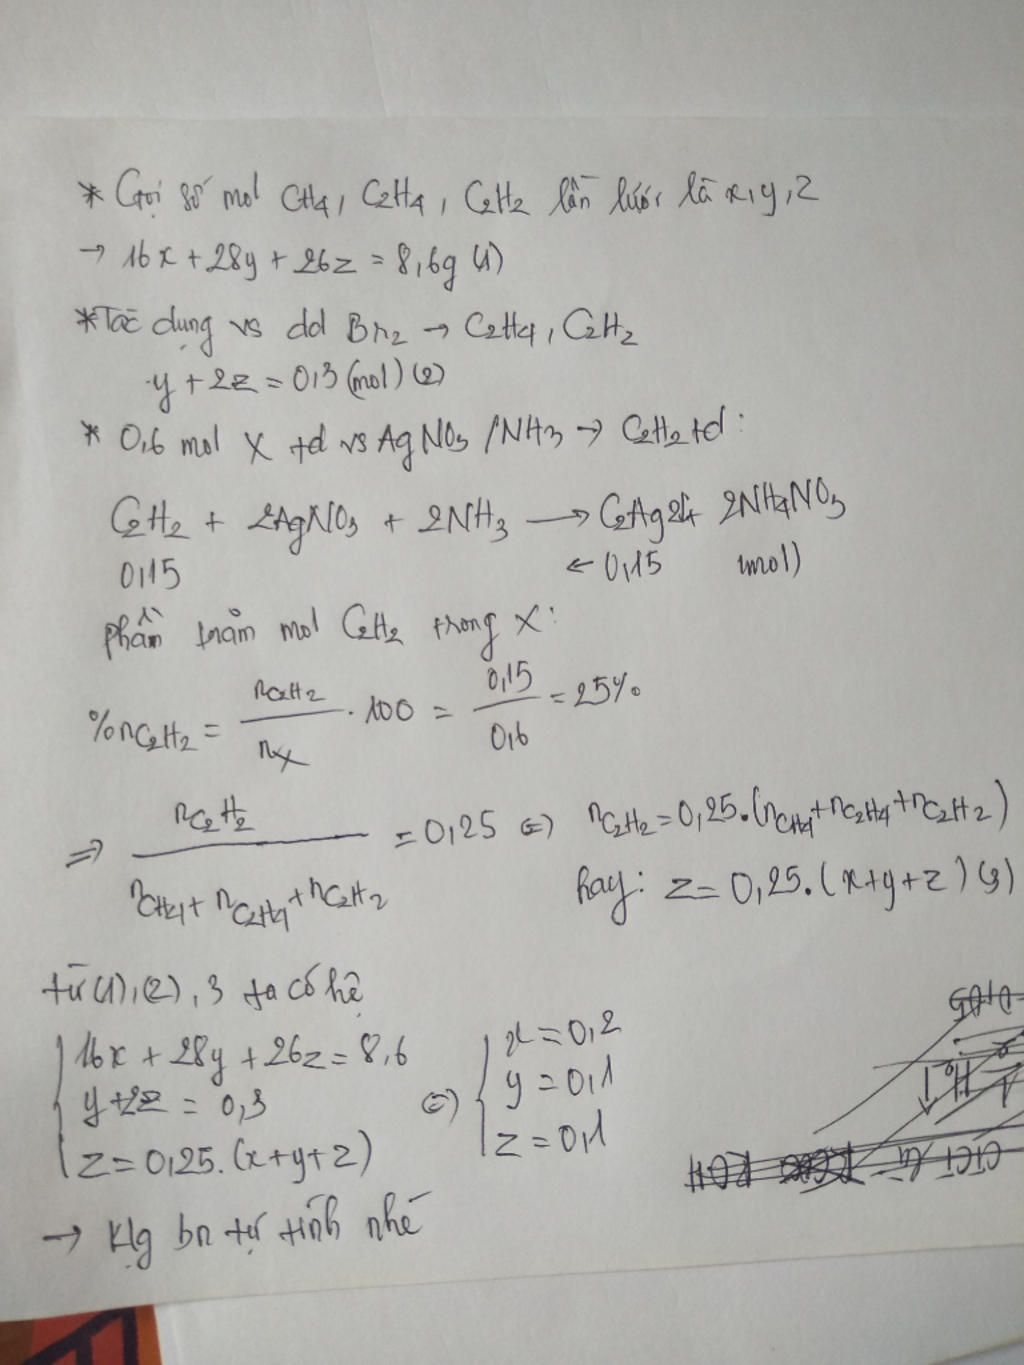 * Gọi số mol CH4, C2H4, C2H2 lần lước là x,y,z
→ 16x + 28y + 26z = 8,6g (1)
*Tác dụng vs dd Br2 → C2H4, C2H2
y + 2z = 0,3 (mol) (2)
* 0,6 mol X td vs AgNO3/NH3 → C2H2 td:
C2H2 + 2AgNO3 + 2NH3 → C2Ag2↓+ 2NH4NO3
0,15 ← 0,15 (mol)
phần trăm mol C2H2 trong X:
%nC2H2 = nC2H2 / nX . 100 = 0,15 / 0,6 = 25%
⇒ nC2H2 / nCH4 + nC2H4 + nC2H2 = 0,25 ⇔ nC2H2 = 0,25.(nCH4+nC2H4+nC2H2)
hay: z = 0,25.(x+y+z) (3)
từ (1),(2),3 ta có hệ
{ 16x + 28y + 26z = 8,6
y+2z = 0,3
z = 0,25.(x+y+z)
⇔ { x = 0,2
y = 0,1
z = 0,1
→ Klg bn tự tính nhé